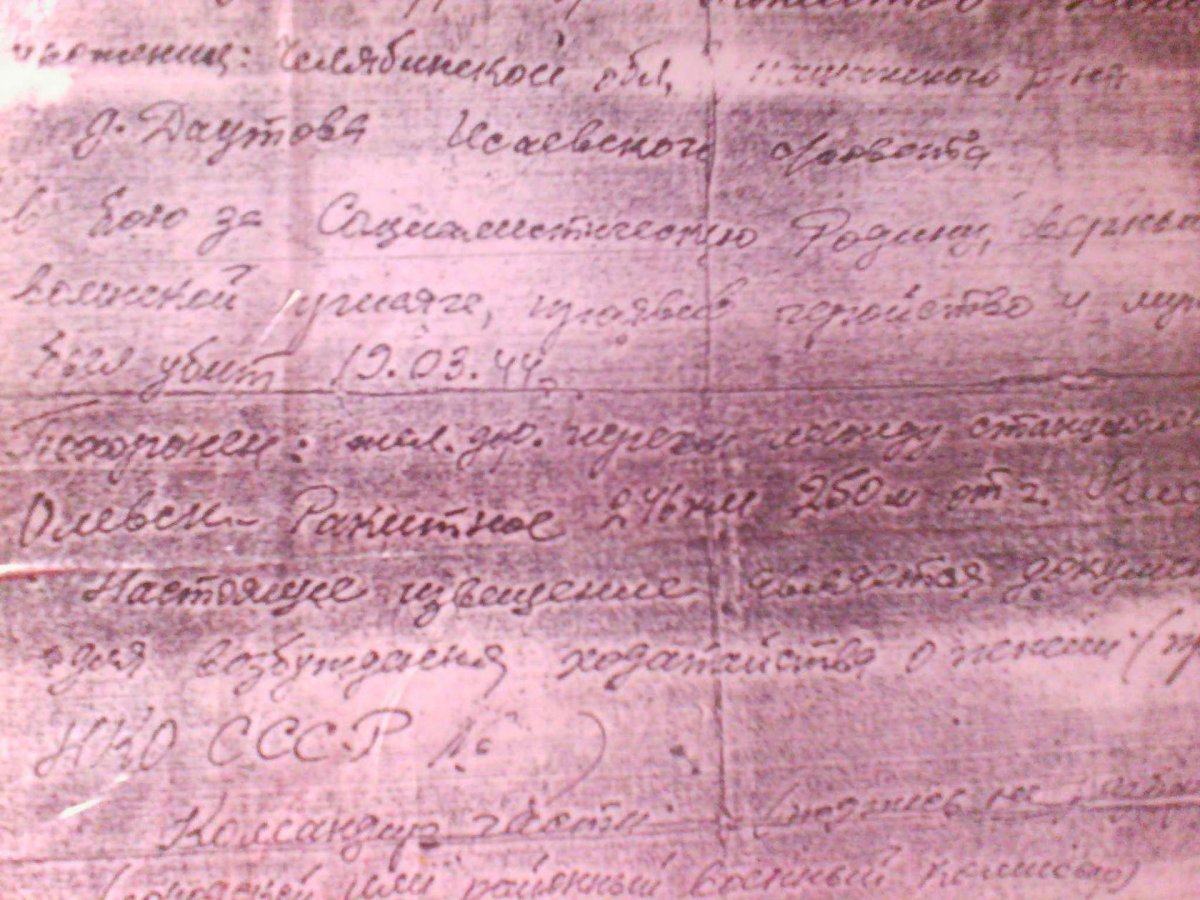 Челябинской обл,
д. Даутова Исаевского с/совета
В бою за Социалистическую Родину, верный
воинской присяге, проявив геройство и муж
был убит 19.03.44.
Похоронен: жел. дор. между станциями
Олевск - Ракитное 246 км 250 м от г. Кие
Настоящее извещение является докумен
для возбуждения ходатайства о пенсии (пр
НКО СССР № )
Командир части (подпись
районный военный комиссар)